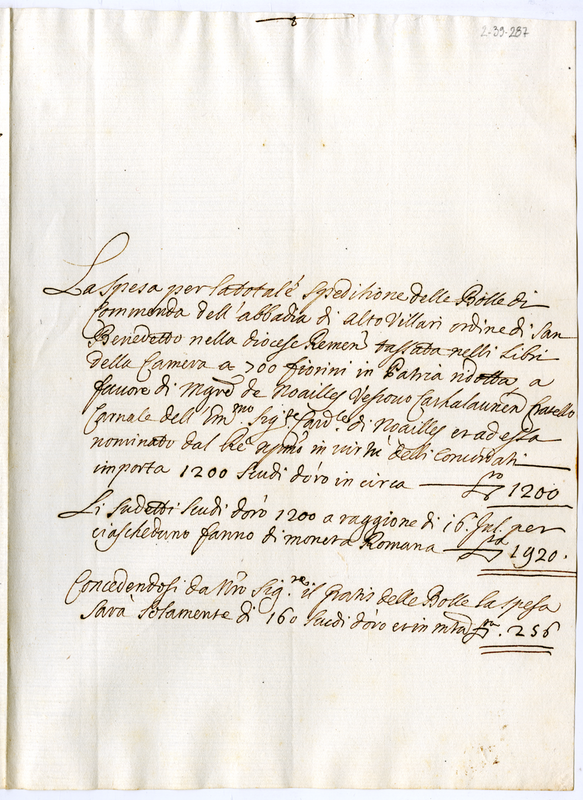 2-39-287
La spesa per la totale speditione delle Bolle di
Commenda dell'abbadia di Alto Villari ordine di San
Benedetto nella diocese Remen tassata nelli Libri
della Camera a 700 fiorini in Patria ridotta, a
favore di Mgre de Noailles Vescovo Cathalaunen fratello
Carnale dell'Emmo Sigre Cardle di Noailles et ad essa
nominato dal Re Xpmo in virtù delli Concordati
importa 1200 scudi d'oro in circa 1200
Li sudetti scudi d'oro 1200 a raggione di 16 Jul. per
ciascheduno fanno di moneta Romana 1920.
Concedendosi da Nro Sigre il gratis delle Bolle la spesa
sarà solamente di 160 scudi d'oro et in mta 256